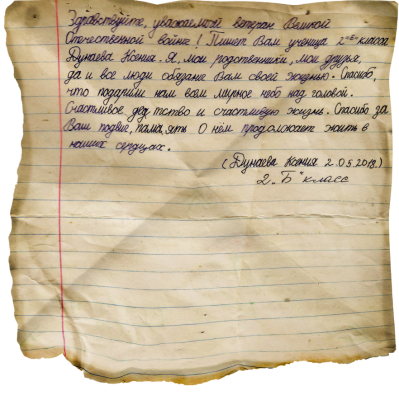 Здравствуйте, уважаемый ветеран Великой
Отечественной войны! Пишет Вам ученица 2 "Б" класса
Дунаева Ксения. Я, мои родственники, мои друзья,
да и все люди обязаны Вам своей жизнью. Спасибо,
что подарили нам всем мирное небо над головой.
Счастливое детство и счастливую жизнь. Спасибо за
Ваш подвиг, память о нём продолжает жить в
наших сердцах.
(Дунаева Ксения 2.05.2018.)
2 "Б" класс